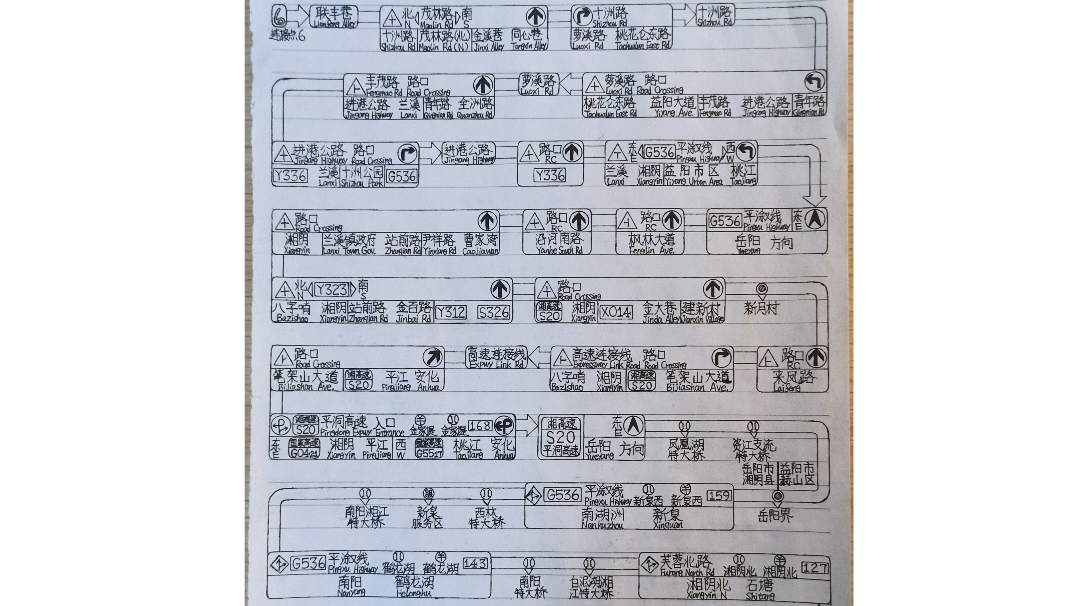 6 联丰巷 北 茂林路 南 十洲路 十洲路
Lianfeng Alley N Maolin Rd S Shizhou Rd Shizhou Rd
十洲路 茂林路(北) 金溪巷 同心巷 萝溪路 桃花仑东路
Shizhou Rd Maolin Rd (N) Jinxi Alley Tongxin Alley Luoxi Rd Taohualun East Rd
丰茂路 路口 萝溪路 萝溪路 路口
Fengmao Rd Road Crossing Luoxi Rd Luoxi Rd Road Crossing
进港公路 兰溪 青年路 桃花仑东路 益阳大道 丰茂路 进港公路 青年路
Jingang Highway Lanxi Qingnian Rd Taohualun East Rd Yiyang Ave. Fengmao Rd Jingang Highway Qingnian Rd
进港公路 路口 进港公路 路口 东 G536 平溆线 西
Jingang Highway Road Crossing Jingang Highway RC E Pingxu Highway W
Y336 兰溪 十洲公园 G536 Y336 兰溪 湘阴 益阳市区 桃江
Lanxi Shizhou Park Lanxi Xiangyin Yiyang Urban Area Taojiang
路口 路口 路口 G536 平溆线 东
Road Crossing RC RC Pingxu Highway E
湘阴 兰溪镇政府 站前路 尹祥路 曹家湾 沿河南路 枫林大道 岳阳 方向
Xiangyin Lanxi Town Gov. Zhanqian Rd Yinxiang Rd Caojiawan Yanhe South Rd Fenglin Ave. Yueyang
北 Y323 南 路口
N S Road Crossing
八字哨 湘阴 站前路 金百路 Y312 S326 湘高速 S20 湘阴 X014 金大巷 建新村 新月村
Bazishao Xiangyin Zhanqian Rd Jinbai Rd Xiangyin Jinda Alley Jianxin Village
路口 高速连接线 高速连接线 路口 路口
Road Crossing Expwy Link Rd Expressway Link Road Road Crossing RC
笔架山大道 湘高速 S20 平江 安化 八字哨 湘阴 湘高速 S20 笔架山大道 来凤路
Bijiashan Ave. Pingjiang Anhua Bazishao Xiangyin Bijiashan Ave. Laifeng
湘高速 S20 平洞高速 入口 168 湘高速 东
Pingdong Expwy Entrance S20 E
东 湘阴 平江 西 桃江 安化 平洞高速 岳阳 方向 凤凰湖 资江支流
E G0421 Xiangyin Pingjiang W G5517 Taojiang Anhua Yueyang 特大桥 特大桥
岳阳市 益阳市
湘阴县 赫山区
南阳湘江 新泉 西林 G536 平溆线 新泉西 新泉西 159 岳阳界
特大桥 服务区 特大桥 Pingxu Highway
南湖洲 新泉
Nanhuzhou Xinquan
G536 平溆线 鹤龙湖 鹤龙湖 143 南阳 白泥湖湘 芙蓉北路 湘阴北 湘阴北 127
Pingxu Highway 特大桥 江特大桥 Furong North Rd
南阳 鹤龙湖 湘阴北 石塘
Nanyang Helonghu Xiangyin N Shitang